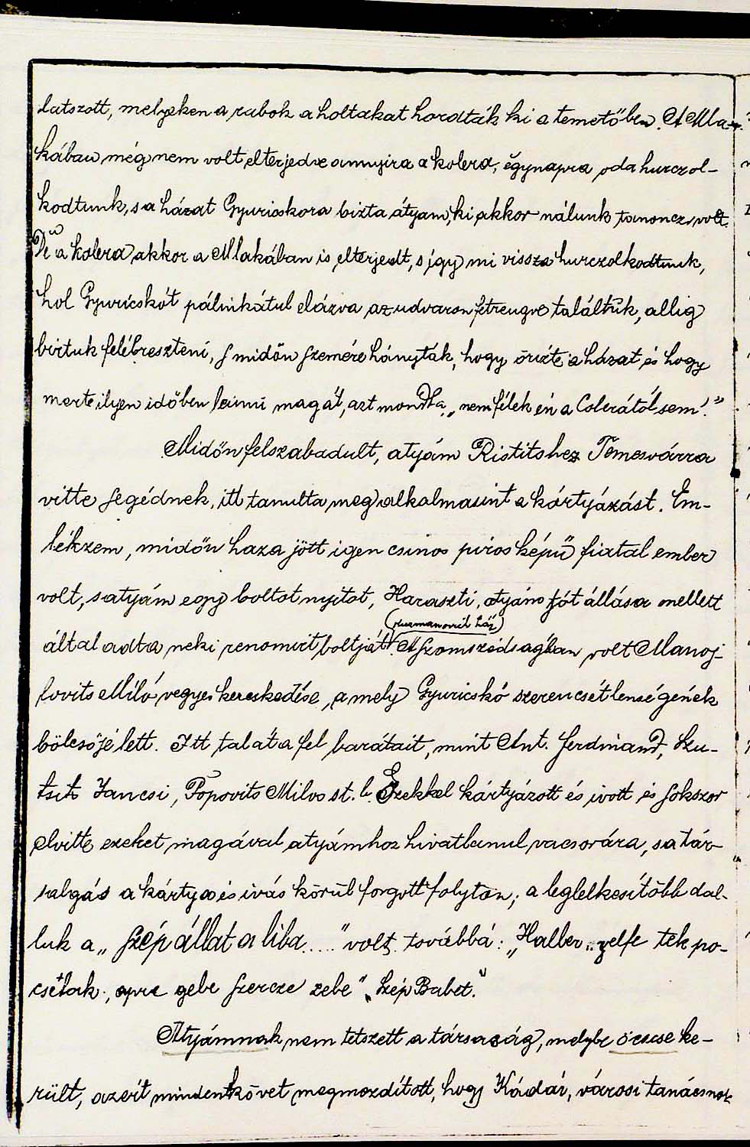 látszott, melyeken a rabok a holtakat hordták ki a temetőben. A Mla-
kában még nem volt elterjedve annyira a kolera, egynapra oda hurczol-
kodtunk, s a házat Gyuricskora bizta atyám, ki akkor nálunk tanoncz volt.
De a kolera akkor a Mlakában is elterjedt, s igy mi vissza hurczolkodtunk,
hol Gyuricskót pálinkátul elázva az udvaron fetrengve találtuk, allig
birtuk felébreszteni, s midőn szemére hányták, hogy őrizte a házat és hogy
merte ilyen időben leinni magát, azt mondta, „nem félek én a Colerától sem!"
Midőn felszabadult, atyám Ristitshez Temesvárra
vitte segédnek, itt tanulta meg alkalmasint a kártyázást. Em-
lékzem, midőn haza jött igen csinos piros képű fiatal ember
volt, s atyám egy boltot nyitot, Haraszti, atyám jót állása mellett
által adta neki renomirt boltját. A szomszédságban volt Manoj-
lovits Miló vegyes kereskedése, a mely Gyuricskó szerencsétlenségének
bölcsőjé lett. Itt talált a fel barátait, mint Ant. Ferdinand, Szu-
tsits Jancsi, Popovits Milvo st. b. Ezekkel kártyázott és ivott és sokszor
elvitte ezeket magával atyámhoz hivatlanul vacsorára, s a tár-
salgás a kártya és ivás körül forgott folyton; a leglelkesitőbb dal-
luk a „Szép állat a liba...." volt továbbá: „Halber zelfe ték po-
csétak, apre gebe szercze zebe" „Szép Babet."
Atyámnak nem tetszett a társaság, melybe öcscse ke-
rült, azért minden követ megmozdított, hogy Kádár, városi tanácsnok